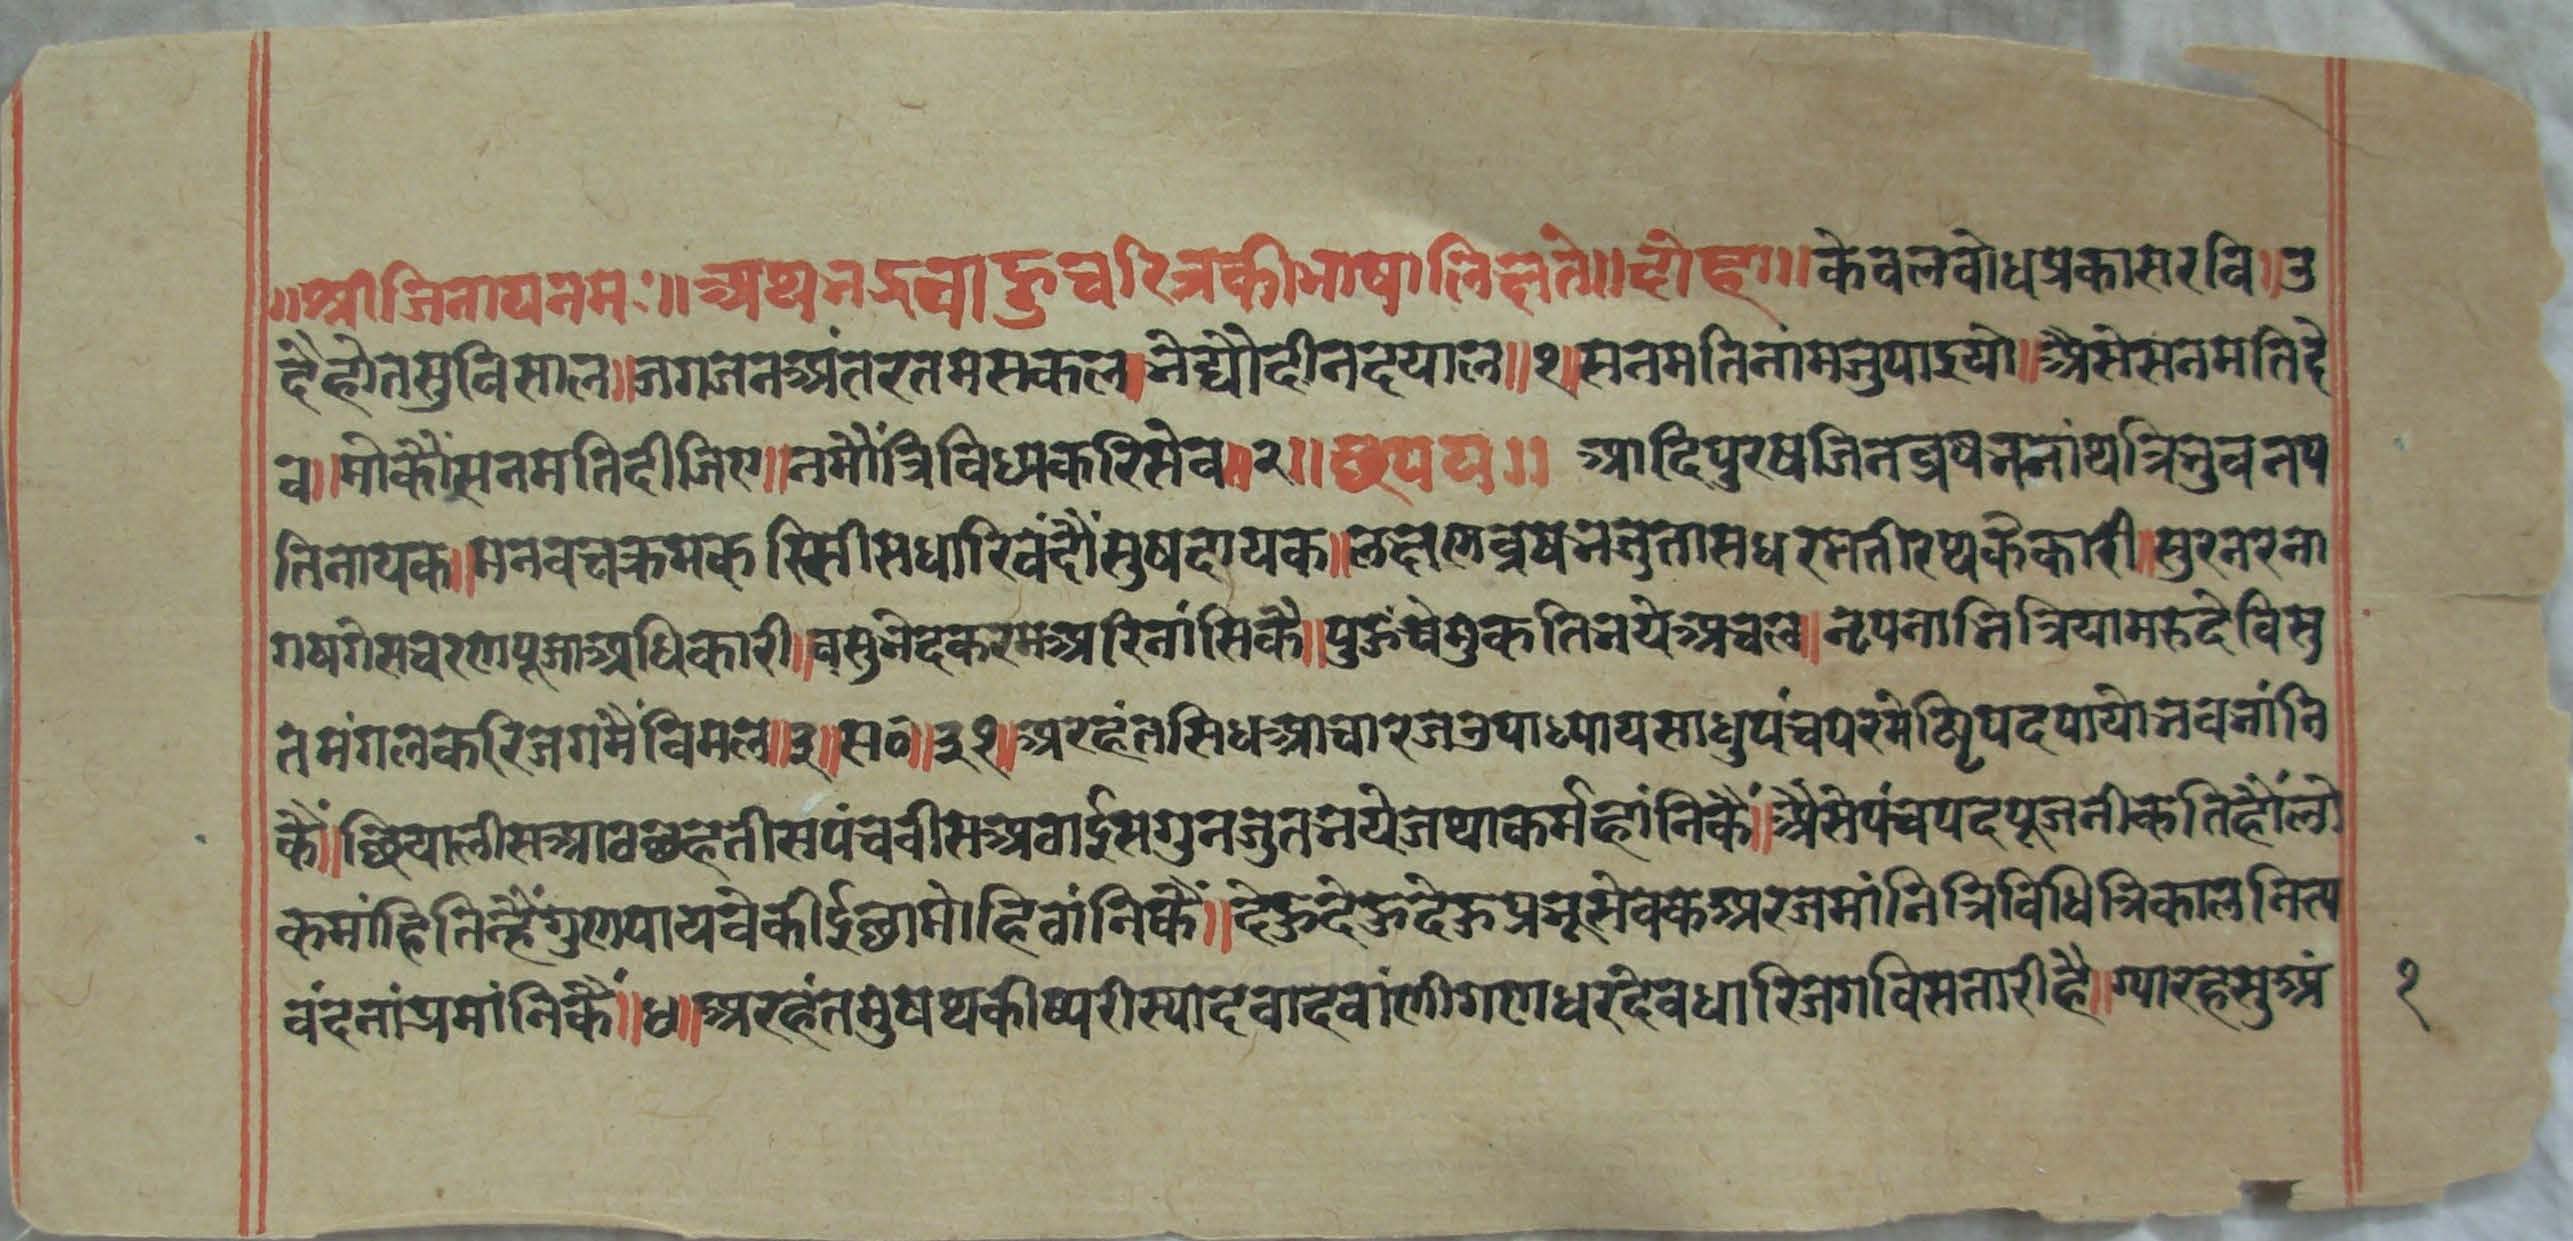 ॥श्रीजिनायनमः॥ अथभद्रबाहुचरित्रकीभाषालिख्यते॥दोहा॥ केवलबोधप्रकासरवि॥उ
दैहोतसुविसाल॥जगजनअंतरतमसकल।भेद्यौदीनदयाल॥१॥सनमतिनांमजुपाइयो॥अैसेसनमतिदे
व॥मोकौंसनमतिदीजिए॥नमौंत्रिविधकरिसेव॥२॥छप्पय॥ आदिपुरषजिनव्रषभनांथत्रिभुवनप
तिनायक॥मनवचक्रमकरिसीसधारिवंदौंसुषदायक॥लछणव्रषभजुतासधरमतीरथकैकारी॥सुरनरना
गषगेसचरणपूजाअधिकारी॥वसुभेदकरमअरिनांसिकै॥पुहंचेमुकतिभयेअचल॥नृपनाभित्रियामरुदेविसु
तमंगलकरिजगमैंविमल॥३॥स०॥३१॥अरहंतसिधआचारजउपाध्यायसाधुपंचपरमेष्ठिपदपायोभवभांनि
कैं॥छियालीसआठछहतीसपंचवीसअठाईसगुनजुतभयेजथाकर्महांनिकैं॥अैसेपंचपदपूजनीकतिहौंलो
कमांहितिन्हैंगुणपायवेकीईछामोहिठांनिकैं॥देहुदेहुदेहुप्रभूसेवककेअरजमांनित्रिविधित्रिकालनित्य
वंदनांप्रमांनिकैं॥४॥अरहंतमुषथकीष्परीस्यादवादवांणीगणधरदेवधारिजगविसतारीहै॥ग्यारहसुअं
१